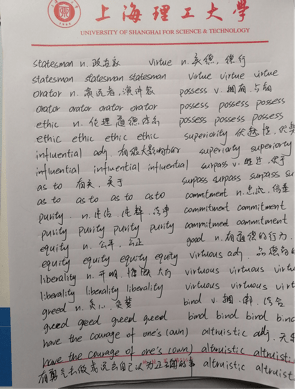 上海理工大学
UNIVERSITY OF SHANGHAI FOR SCIENCE & TECHNOLOGY
statesman n. 政治家 virtue n. 美德, 德行
statesman statesman statesman virtue virtue virtue
orator n. 演说者, 演讲家 possess v. 拥有, 占有
orator orator orator orator possess possess possess
ethic n. 伦理 道德标准 possess possess possess
ethic ethic ethic ethic superiority 优越性
influential adj. 有很大影响的 superiority superiority
influential influential influential surpass v. 胜过
as to 有关, 关于 surpass surpass surpass su
as to as to as to as to commitment n.
purity n. 纯洁, 纯粹, commitment commitment
purity purity purity purity commitment commitment
equity n. 公平, 公正 good n. 有道德的行为
equity equity equity equity virtuous adj.
liberality n. 开明 virtuous virtuous virtu
liberality liberality liberality virtuous virtuous vi
greed n. 贪心, 贪婪 bind v.
greed greed greed greed bind bind bind bin
have the courage of one's (own) altruistic adj.
have the courage of one's (own) altruistic altruistic
有勇气去做或说自己认为正确的事 altruistic altruistic